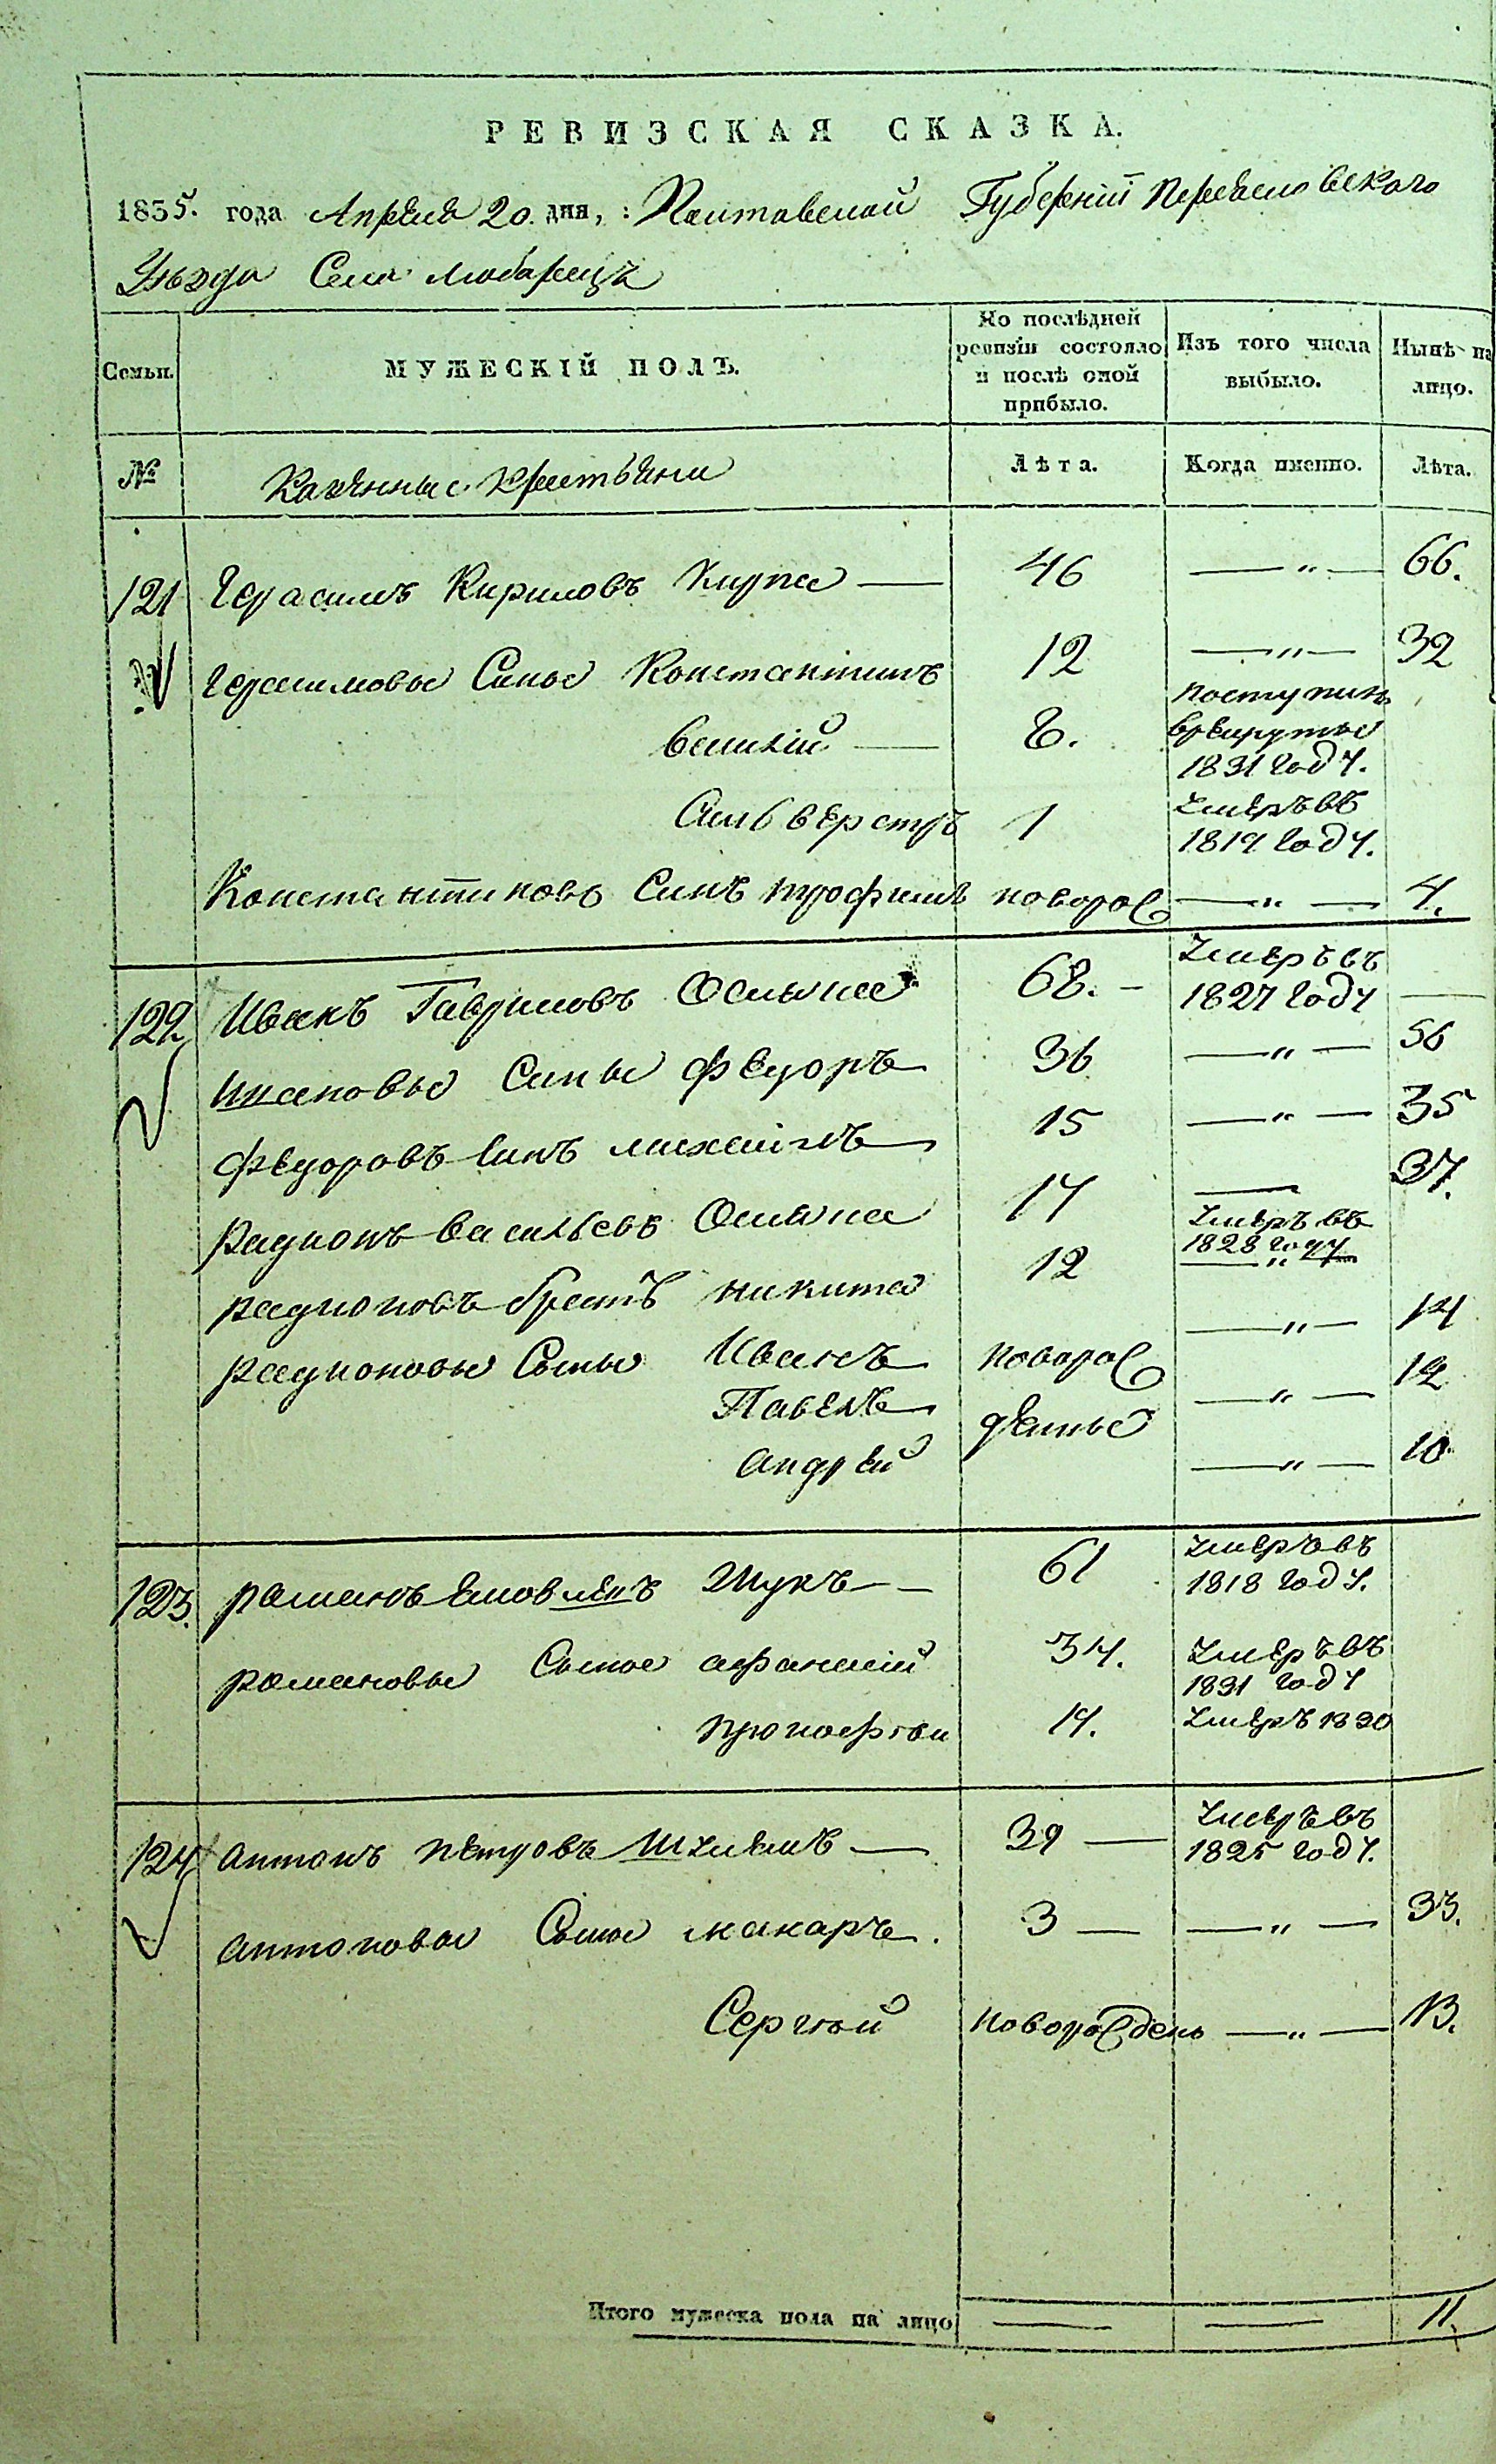 РЕВИЗСКАЯ СКАЗКА.
1835. года Апреля 20. дня, : Полтавской Губерніи Переяславскаго
Уѣзда Села Любарецъ
Семьи.
МУЖЕСКІЙ ПОЛЪ.
По послѣдней ревизіи состояло и послѣ оной прибыло.
Изъ того числа выбыло.
Нынѣ на лицо.
№
Казенные Крестьяни
Лѣта.
Когда именно.
Лѣта.
121 Герасимъ Кириловъ 46 — „ — 66.
Герасимовы Сины Константинъ 12 — „ — 32
Василій — 8. поступилъ врекруты 1831 году.
Сильверстръ 1 Умеръ въ 1819 году.
Константиновъ Синъ трофимъ новорос — „ — 4.
122 Иванъ Гавриловъ 68. – Умеръ въ 1827 году —
Ивановы Сины федоръ 36 — „ — 56
федоровъ Синъ михаилъ 15 — „ — 35
радионъ Васильевъ 17 — 37.
радионовъ братъ никита 12 Умеръ въ 1828 году — „ —
радионовы Сыны Иванъ новорос — „ — 14
Павелъ денные — „ — 12
андрей — „ — 10
123. романъ Шукъ — 61 Умеръ въ 1818 году.
романовы Сыны афанасій 34. Умеръ въ 1831 году
прокофій 14. Умеръ 1830
124 антонъ петровъ — 39 — Умеръ въ 1825 году.
антоновы Сыны макаръ. 3 — — „ — 33.
Сергѣй новоросденъ — „ — 13.
Итого мужеска пола на лицо — — 11.